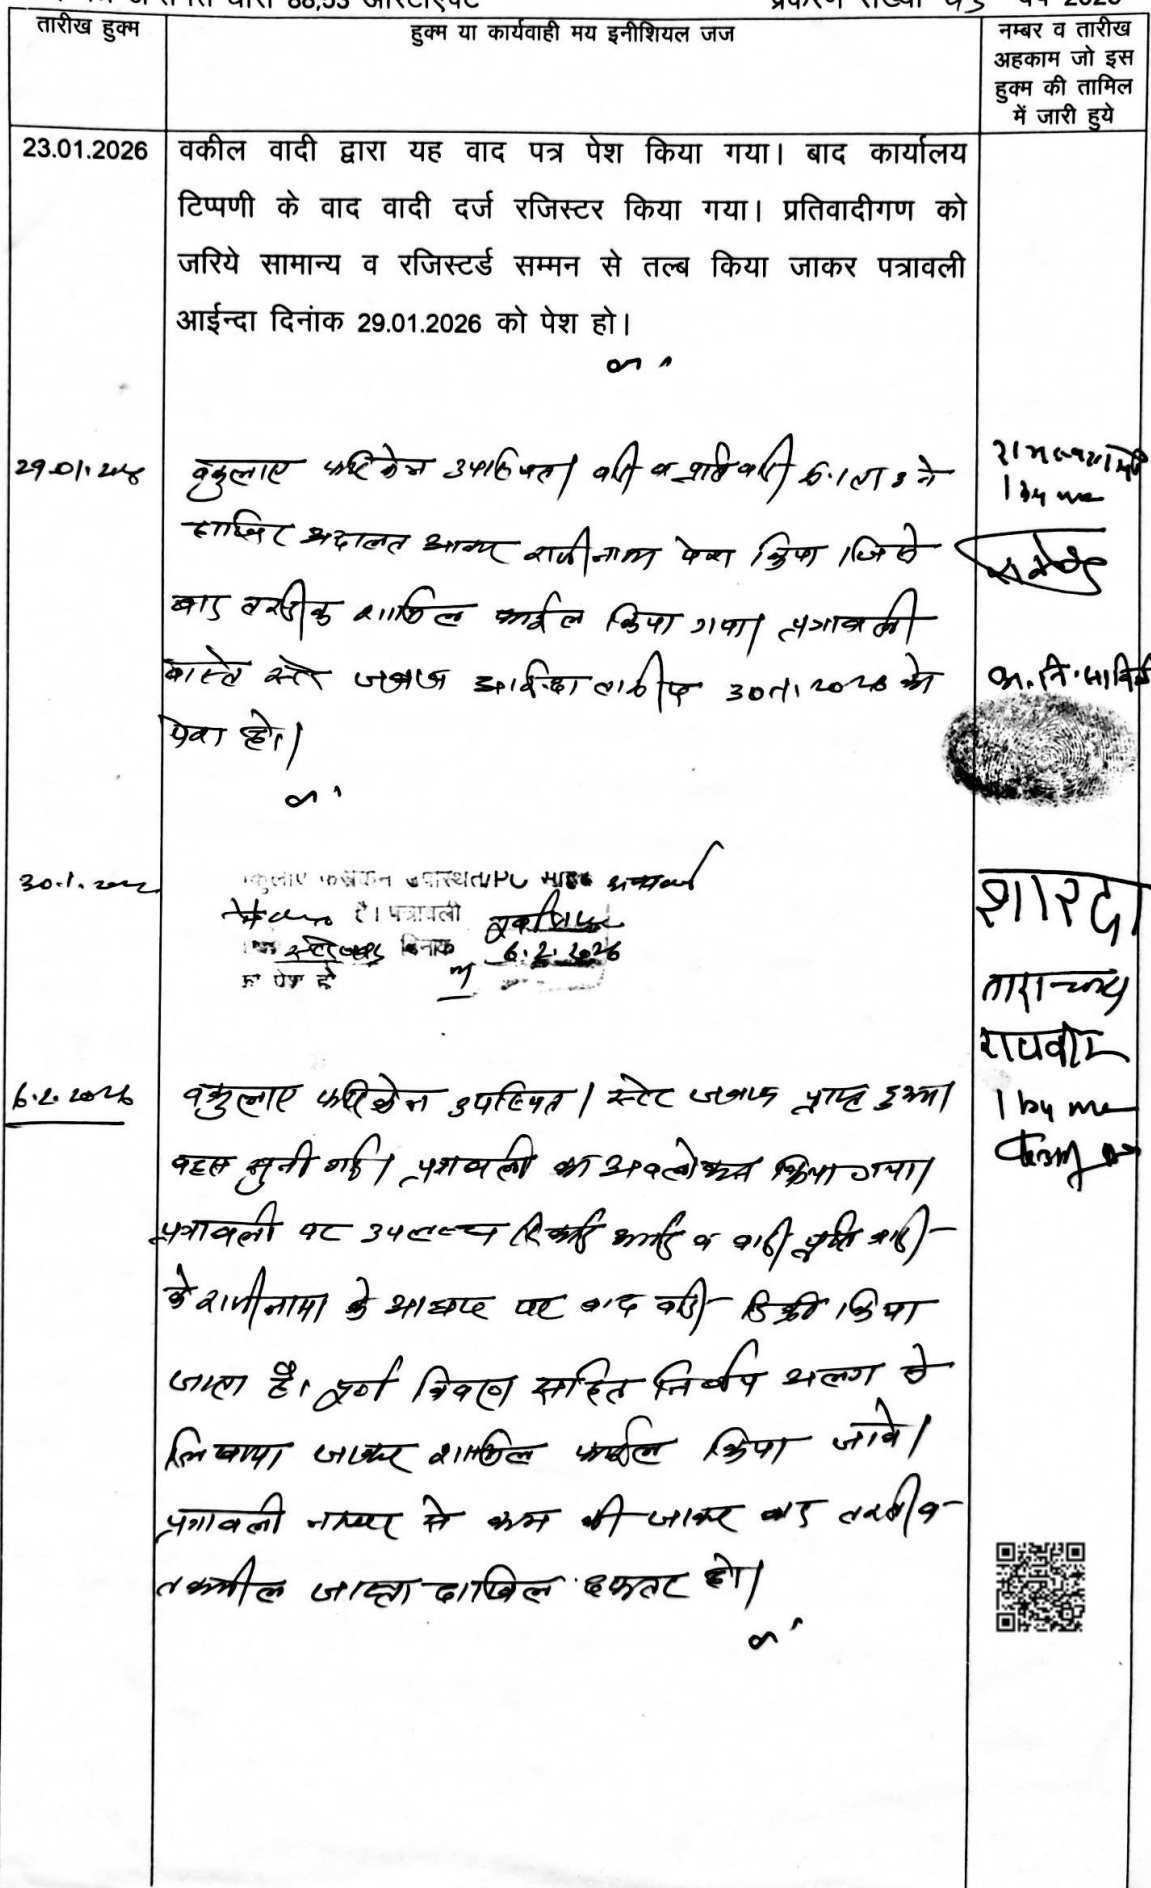 धारा 88,53 आरटीएक्ट प्रकरण संख्या वर्ष 2026
तारीख हुक्म
हुक्म या कार्यवाही मय इनीशियल जज
नम्बर व तारीख
अहकाम जो इस
हुक्म की तामिल
में जारी हुये
23.01.2026
वकील वादी द्वारा यह वाद पत्र पेश किया गया। बाद कार्यालय
टिप्पणी के वाद वादी दर्ज रजिस्टर किया गया। प्रतिवादीगण को
जरिये सामान्य व रजिस्टर्ड सम्मन से तल्ब किया जाकर पत्रावली
आईन्दा दिनांक 29.01.2026 को पेश हो।
29.01.2026
वकुलाए फरिकेन उपस्थित। वादी व प्रतिवादी ने
हाजिर अदालत आकर राजीनामा पेश किया जिसे
बाद तस्दीक शामिल फाईल किया गया। पत्रावली
वास्ते स्टेट जवाब आईन्दा तारीख 30.1.2026 को
पेश हो।
1 by me
30.1.2026
वकुलाए फरिकेन उपस्थित/PO साहब अन्य कार्य
है। पत्रावली
स्टेट जवाब दिनांक 6.2.2026
को पेश हो
शारदा
ताराचन्द
1 by me
6.2.2026
वकुलाए फरिकेन उपस्थित। स्टेट जवाब प्राप्त हुआ।
बहस सुनी गई। पत्रावली का अवलोकन किया गया।
पत्रावली पर उपलब्ध रिकॉर्ड व वादी प्रतिवादी
के राजीनामा के आधार पर वाद वादी डिक्री किया
जाता है। पूर्ण विवरण सहित निर्णय अलग से
लिखाया जाकर शामिल फाईल किया जावे।
पत्रावली नम्बर से कम की जाकर बाद तरतीब
तकमील जाब्ता दाखिल दफ्तर हो।